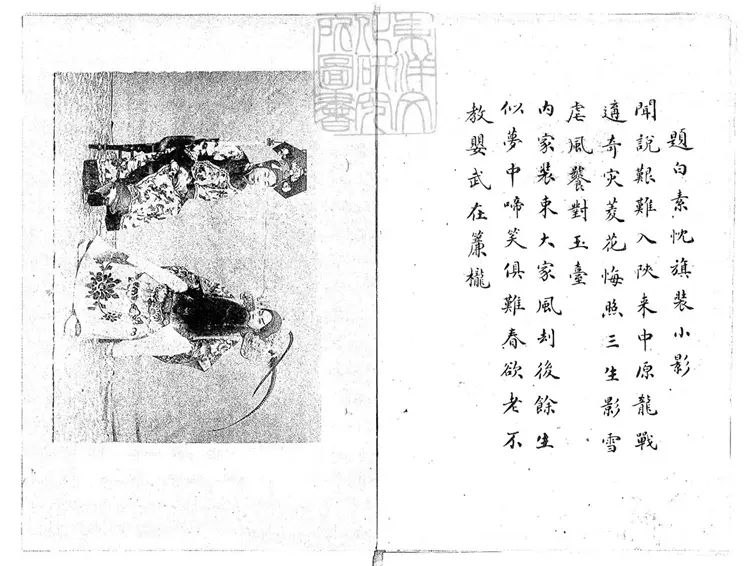 東洋文
化研究
所圖書
題白素忱旗裝小影
聞說艱難入陝来中原龍戰
遘奇灾菱花悔照三生影雪
虐風饕對玉臺
内家裝束大家風刦後餘生
似夢中啼笑俱難春欲老不
教嬰武在簾櫳